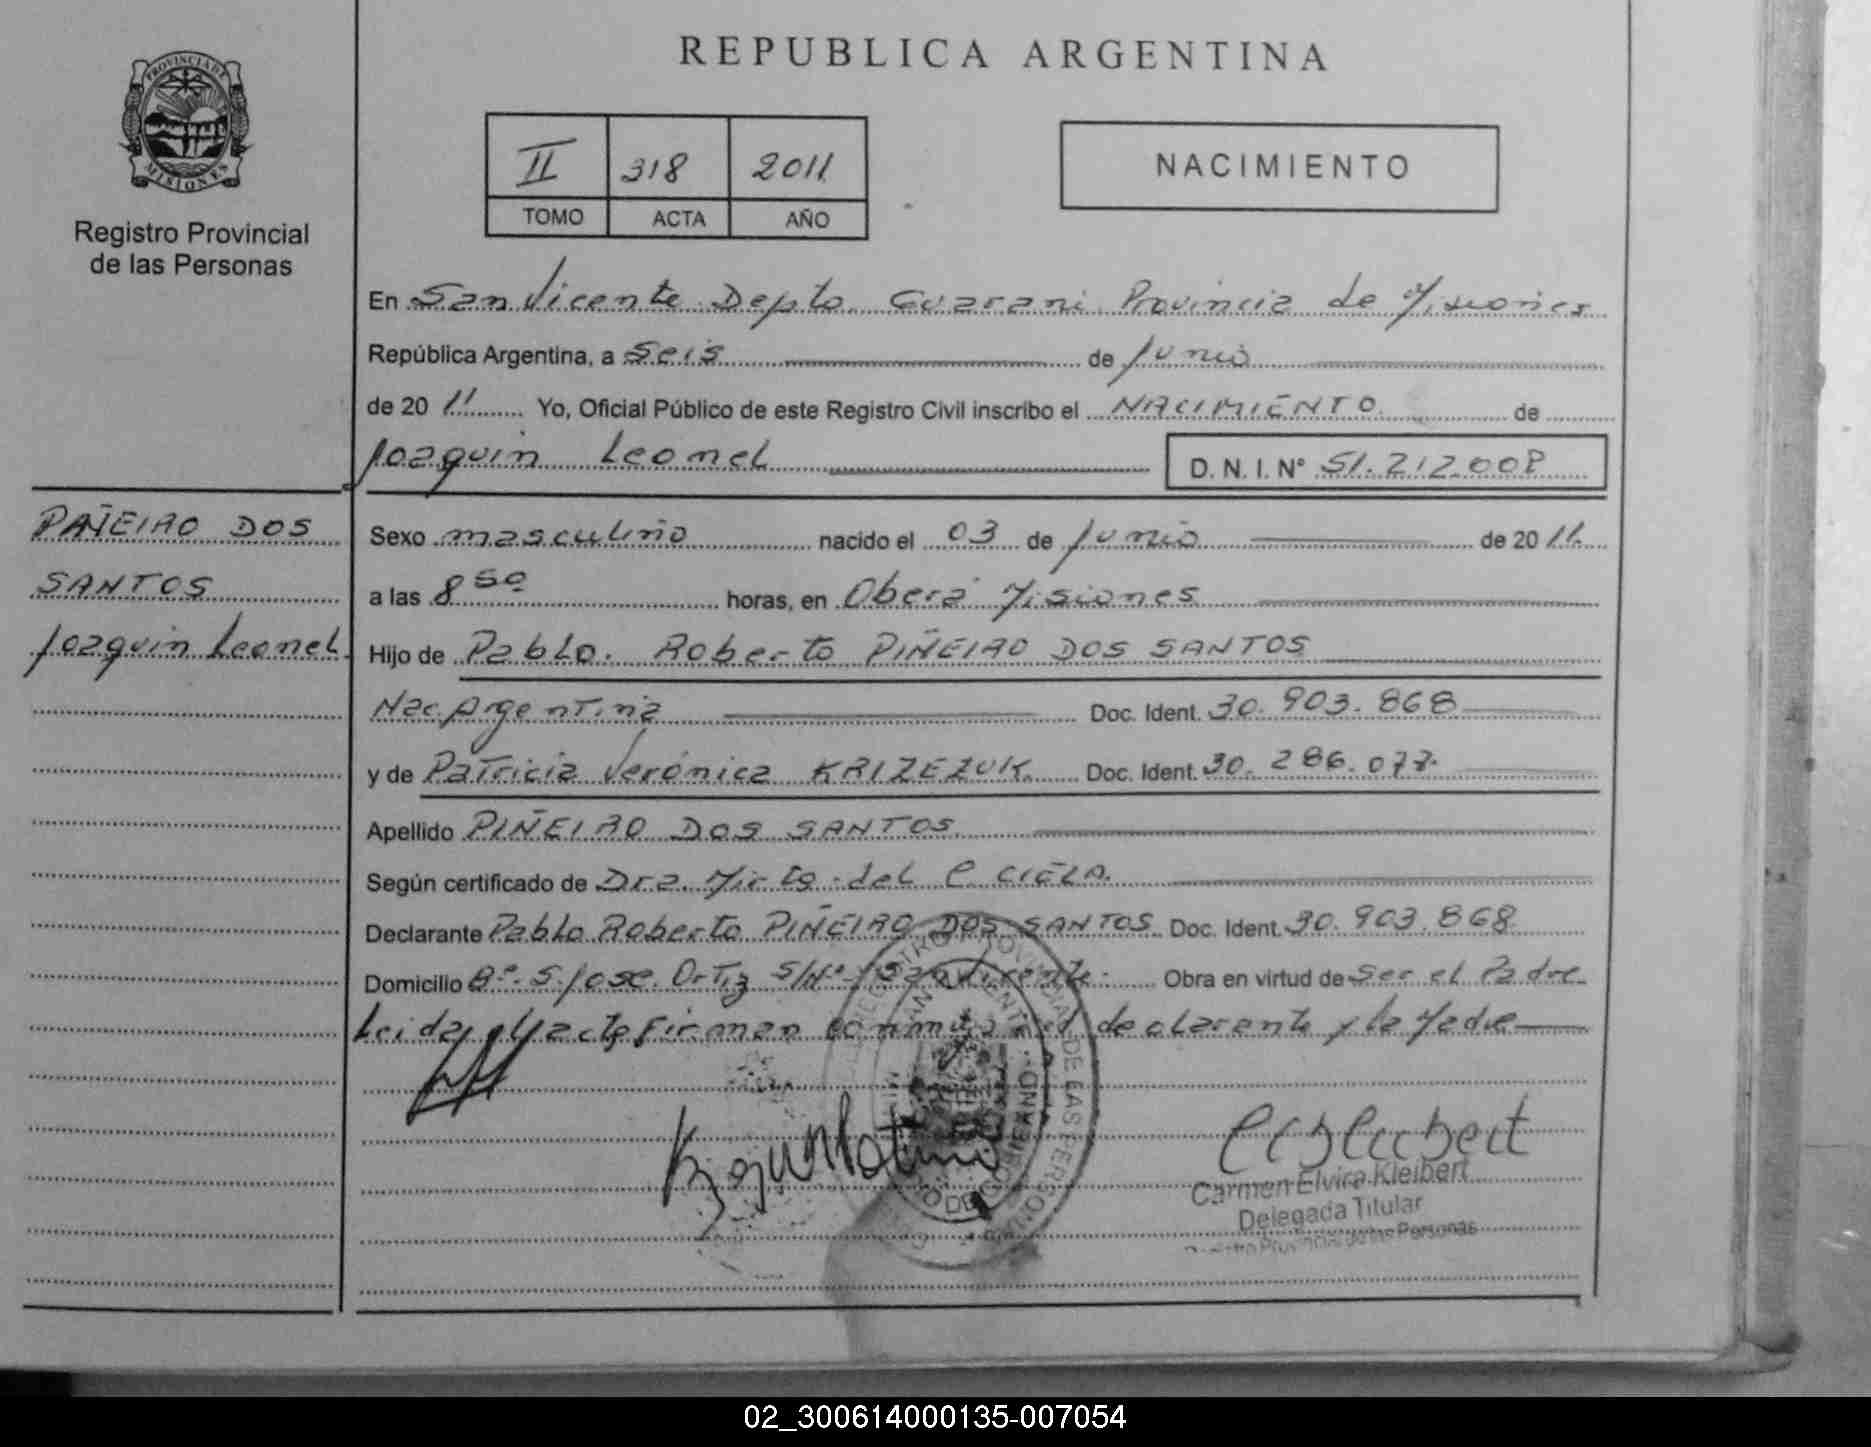 REPUBLICA ARGENTINA
PROVINCIA DE
MISIONES
Registro Provincial
de las Personas
II 318 2011
TOMO ACTA AÑO
NACIMIENTO
En San Vicente Depto. Guarani Provincia de Misiones
República Argentina, a Seis de Junio
de 20 11 Yo, Oficial Público de este Registro Civil inscribo el NACIMIENTO de
Joaquin Leonel D. N. I. N° 51.212.00
PAÑEIRO DOS
SANTOS
Joaquin Leonel
Sexo masculino nacido el 03 de Junio de 20 11
a las 8 50 horas, en Oberá Misiones
Hijo de Pablo Roberto PIÑEIRO DOS SANTOS
Nac. Argentina Doc. Ident. 30.903.868
y de Patricia Verónica KRIZEZUK Doc. Ident. 30.286.077
Apellido PIÑEIRO DOS SANTOS
Según certificado de Dra. Mirta del C
Declarante Pablo Roberto PIÑEIRO DOS SANTOS Doc. Ident. 30.903.868
Domicilio B° S. Jose Ortiz S/N° San Vicente Obra en virtud de Ser el Padre
Leida el acta firman conmigo el declarante y la Madre
Carmen Elvira Kleibert
Delegada Titular
Registro Provincial de las Personas
02_300614000135-007054